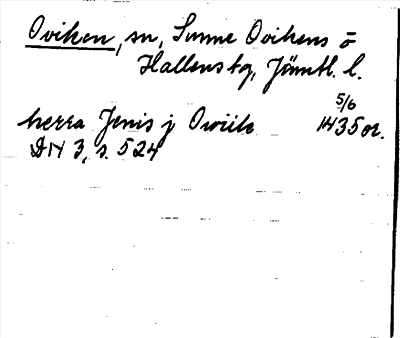 Oviken, sn, Sunne Ovikens o
Hallens tg, Jämtl. l.
5/6
herra Jenis j Owiik 1435 or.
DN 3, s. 524